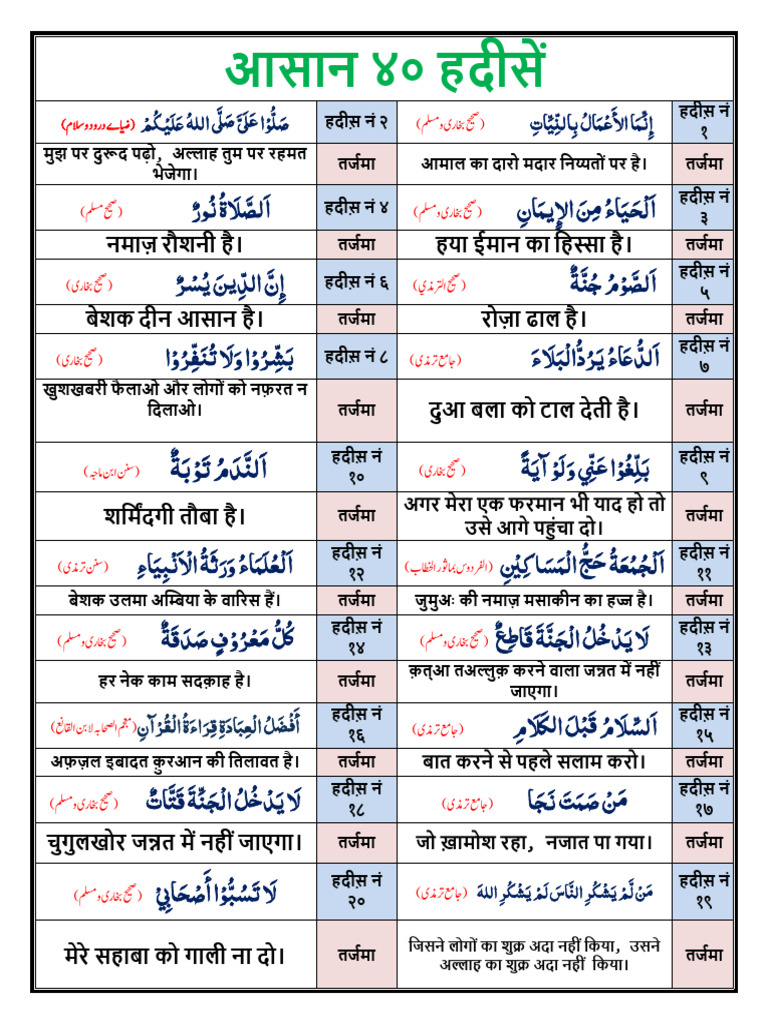 आसान ४० हदीसें
हदीस़ नं १
إِنَّمَا الأَعْمَالُ بِالنِّيَّاتِ (صحیح بخاری و مسلم)
हदीस़ नं २
صَلُّوْا عَلَيَّ صَلَّى اللهُ عَلَيْكُمْ (ضیاے درود و سلام)
तर्जमा
आमाल का दारो मदार निय्यतों पर है।
तर्जमा
मुझ पर दुरूद पढ़ो, अल्लाह तुम पर रहमत
भेजेगा।
हदीस़ नं ३
اَلْحَيَاءُ مِنَ الإِيمَانِ (صحیح بخاری و مسلم)
हदीस़ नं ४
اَلصَّلَاةُ نُورٌ (صحیح مسلم)
तर्जमा
हया ईमान का हिस्सा है।
तर्जमा
नमाज़ रौशनी है।
हदीस़ नं ५
اَلصَّوْمُ جُنَّةٌ (صحیح الترمذي)
हदीस़ नं ६
إِنَّ الدِّينَ يُسْرٌ (صحیح بخاری)
तर्जमा
रोज़ा ढाल है।
तर्जमा
बेशक दीन आसान है।
हदीस़ नं ७
اَلدُّعَاءُ يَرُدُّ الْبَلَاءَ (جامع ترمذی)
हदीस़ नं ८
بَشِّرُوْا وَلَا تُنَفِّرُوْا (صحیح بخاری)
तर्जमा
दुआ बला को टाल देती है।
तर्जमा
खुशखबरी फैलाओ और लोगों को नफ़रत न
दिलाओ।
हदीस़ नं ९
بَلِّغُوْا عَنِّي وَلَوْ آيَةً (صحیح بخاری)
हदीस़ नं १०
اَلنَّدَمُ تَوْبَةٌ (سنن ابن ماجہ)
तर्जमा
अगर मेरा एक फरमान भी याद हो तो
उसे आगे पहुंचा दो।
तर्जमा
शर्मिंदगी तौबा है।
हदीस़ नं ११
اَلْجُمُعَةُ حَجُّ الْمَسَاكِيْنِ (الفردوس بماثور الخطاب)
हदीस़ नं १२
اَلْعُلَمَاءُ وَرَثَةُ الْاَنْبِيَاءِ (سنن ترمذی)
तर्जमा
जुमुअः की नमाज़ मसाकीन का हज्ज है।
तर्जमा
बेशक उलमा अम्बिया के वारिस हैं।
हदीस़ नं १३
لَا يَدْخُلُ الْجَنَّةَ قَاطِعٌ (صحیح بخاری و مسلم)
हदीस़ नं १४
كُلُّ مَعْرُوْفٍ صَدَقَةٌ (صحیح بخاری و مسلم)
तर्जमा
क़त़्आ तअल्लुक़ करने वाला जन्नत में नहीं
जाएगा।
तर्जमा
हर नेक काम सदक़ाह है।
हदीस़ नं १५
اَلسَّلَامُ قَبْلَ الْكَلَامِ (جامع ترمذی)
हदीस़ नं १६
أَفْضَلُ الْعِبَادَةِ قِرَاءَةُ الْقُرْآنِ (معجم الصحابہ لابن القانع)
तर्जमा
बात करने से पहले सलाम करो।
तर्जमा
अफ़ज़ल इबादत क़ुरआन की तिलावत है।
हदीस़ नं १७
مَنْ صَمَتَ نَجَا (جامع ترمذی)
हदीस़ नं १८
لَا يَدْخُلُ الْجَنَّةَ قَتَّاتٌ (صحیح بخاری و مسلم)
तर्जमा
जो ख़ामोश रहा, नजात पा गया।
तर्जमा
चुगुलखोर जन्नत में नहीं जाएगा।
हदीस़ नं १९
مَنْ لَّمْ يَشْكُرِ النَّاسَ لَمْ يَشْكُرِ اللهَ (جامع ترمذی)
हदीस़ नं २०
لَا تَسُبُّوْا أَصْحَابِيْ (صحیح بخاری و مسلم)
तर्जमा
जिसने लोगों का शुक्र अदा नहीं किया, उसने
अल्लाह का शुक्र अदा नहीं किया।
तर्जमा
मेरे सहाबा को गाली ना दो।